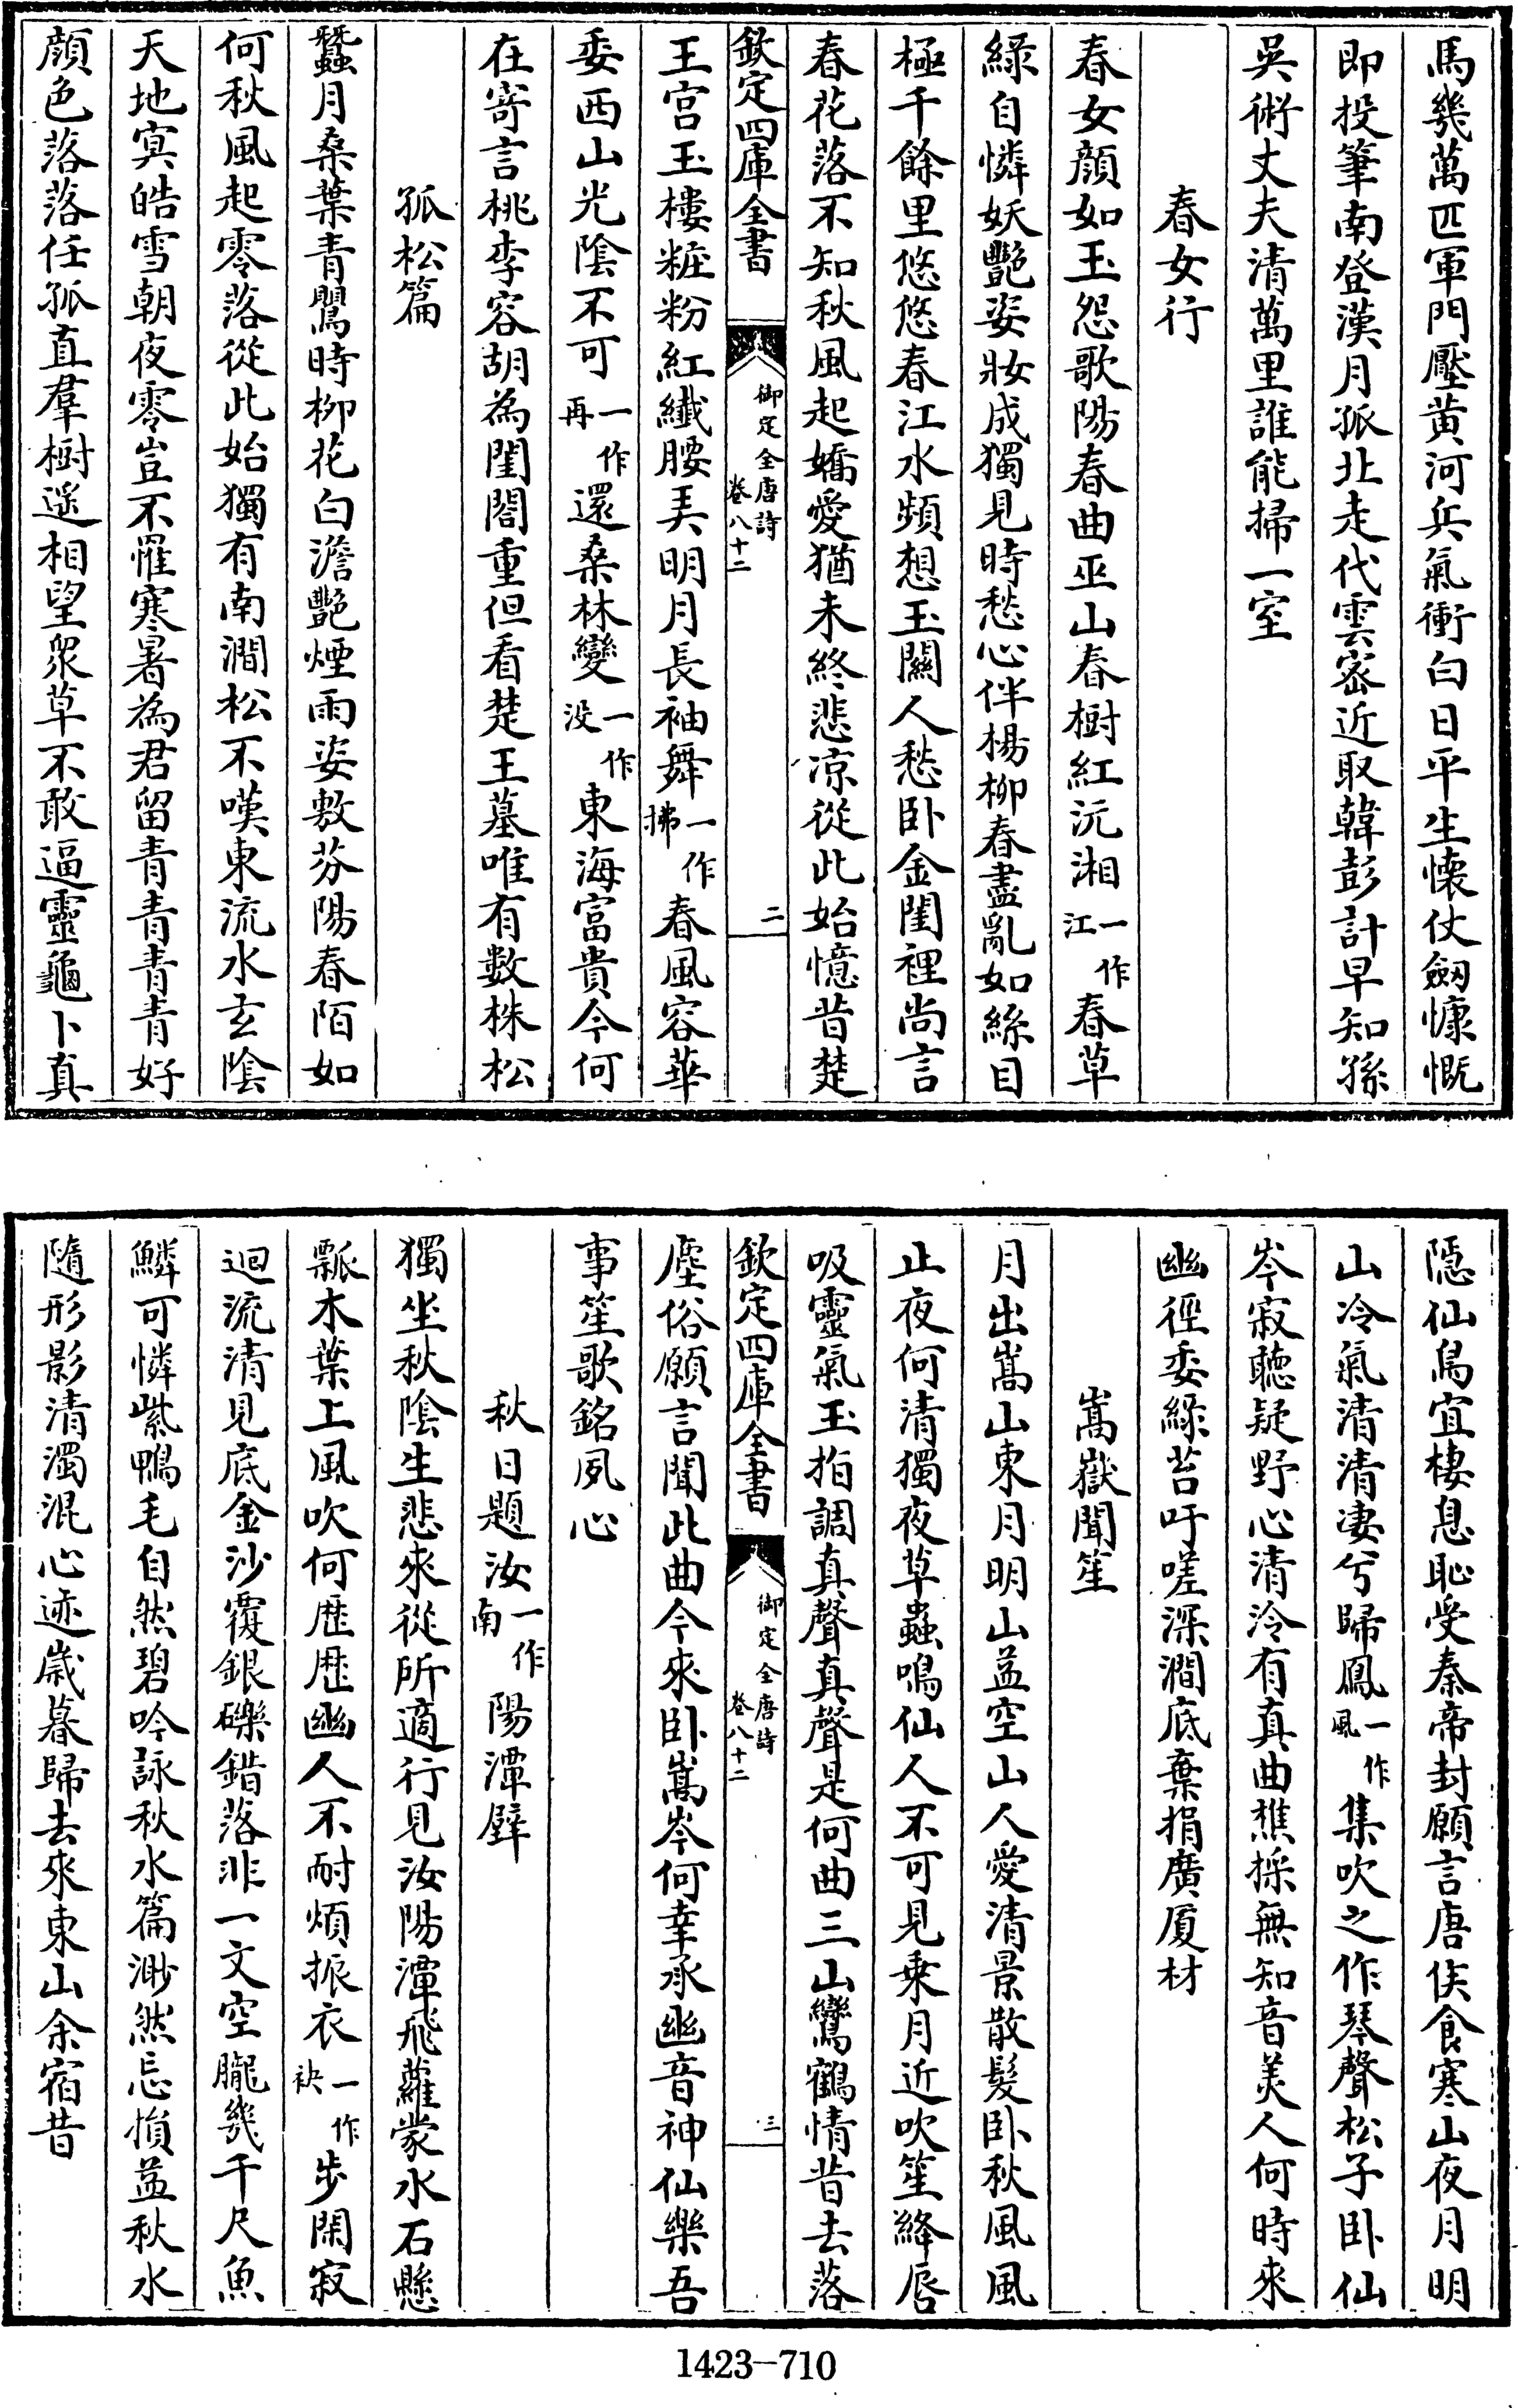 馬幾萬匹軍門壓黄河兵氣衝白日平生懷仗劔慷慨
即投筆南登漢月孤北走代雲密近取韓彭計早知孫
吳術丈夫清萬里誰能掃一室
春女行
春女顔如玉怨歌陽春曲巫山春樹紅沅湘一作江春草
緑自憐妖艷姿妝成獨見時愁心伴楊柳春盡亂如絲目
極千餘里悠悠春江水頻想玉關人愁卧金閨裡尚言
春花落不知秋風起嬌愛猶未終悲凉從此始憶昔楚
欽定四庫全書
御定全唐詩
卷八十二
二
王宫玉樓粧粉紅纎腰美明月長袖舞一作拂春風容華
委西山光陰不可一作再還桑林變一作没東海富貴今何
在寄言桃李容胡為閨閤重但看楚王墓唯有數株松
孤松篇
蠶月桑葉青鶯時柳花白澹艷煙雨姿敷芬陽春陌如
何秋風起零落從此始獨有南澗松不嘆東流水玄陰
天地冥皓雪朝夜零豈不罹寒暑為君留青青青青好
顔色落落任孤直羣樹遥相望衆草不敢逼靈龜卜真
隠仙鳥宜棲息恥受秦帝封願言唐侯食寒山夜月明
山冷氣清清凄兮歸鳳一作風集吹之作琴聲松子卧仙
岑寂聽疑野心清泠有真曲樵採無知音美人何時來
幽徑委緑苔吁嗟深澗底棄捐廣厦材
嵩嶽聞笙
月出嵩山東月明山益空山人愛清景散髮卧秋風風
止夜何清獨夜草蟲鳴仙人不可見乗月近吹笙絳唇
吸靈氣玉指調真聲真聲是何曲三山鸞鶴情昔去落
欽定四庫全書
御定全唐詩
卷八十二
三
塵俗願言聞此曲今來卧嵩岑何幸承幽音神仙樂吾
事笙歌銘夙心
秋日題汝一作南陽潭壁
獨坐秋陰生悲來從所適行見汝陽潭飛蘿蒙水石懸
瓢木葉上風吹何歴歴幽人不耐煩振衣一作袂步閑寂
迴流清見底金沙覆銀礫錯落非一文空朧幾千尺魚
鱗可憐紫鴨毛自然碧吟詠秋水篇渺然忘損益秋水
隨形影清濁混心迹歳暮歸去來東山余宿昔
1423-710